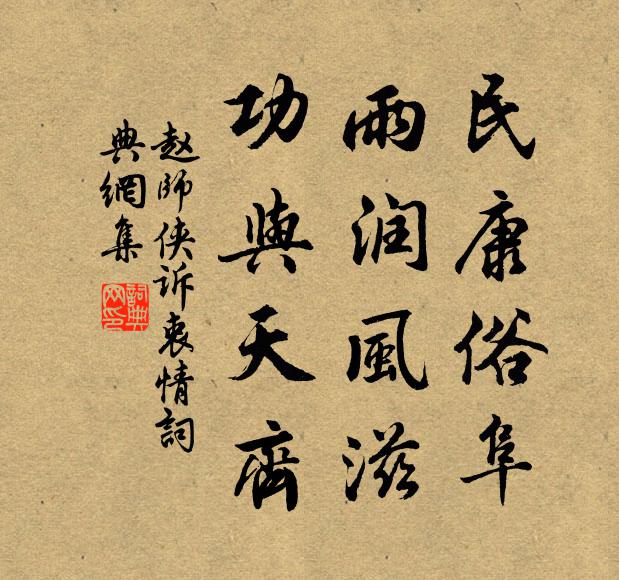 民康俗阜
雨润風滋
功與天齊
赵師侠诉衷情詞
典網集
詞典
网印